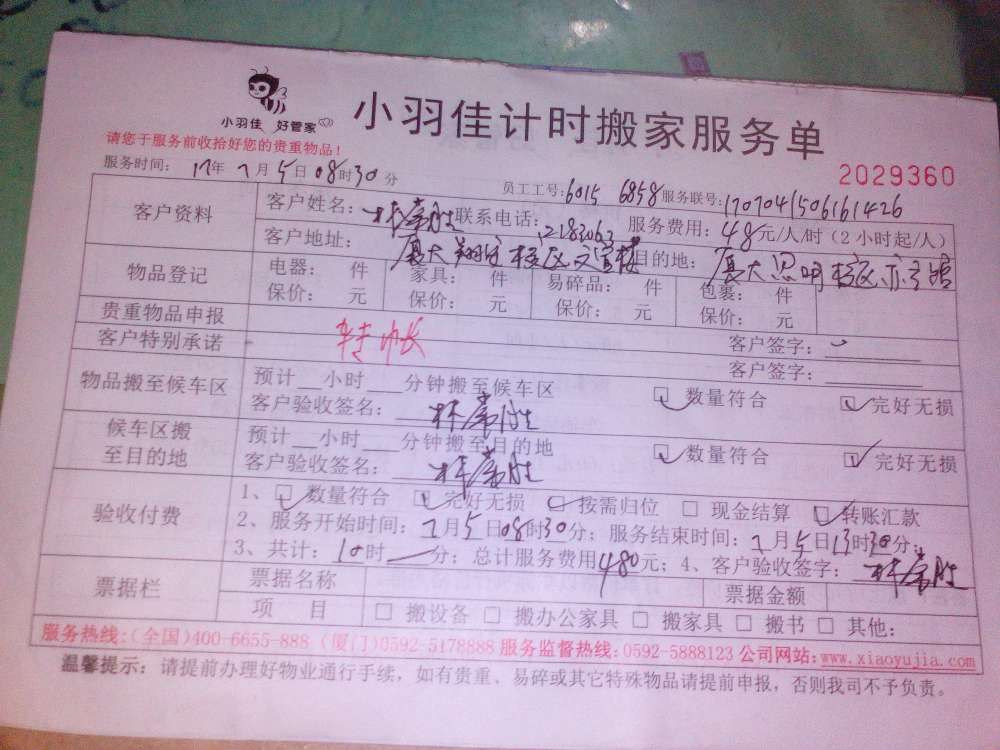 小羽佳 好管家
小羽佳计时搬家服务单
请您于服务前收拾好您的贵重物品！
2029360
服务时间： 17年 7月 5日 08时30分 员工工号：6015 6858 服务联号：1707041506161426
客户资料 客户姓名： 联系电话： 服务费用：48元/人/时（2小时起/人）
客户地址：厦大翔安校区文宣楼 目的地：厦大思明校区
物品登记 电器： 件 家具： 件 易碎品： 件 包裹： 件
保价： 元 保价： 元 保价： 元 保价： 元
贵重物品申报 客户签字：
客户特别承诺 转帐 客户签字：
物品搬至候车区 预计__小时__分钟搬至候车区 数量符合 完好无损
客户验收签名：
候车区搬至目的地 预计__小时__分钟搬至目的地 数量符合 完好无损
客户验收签名：
验收付费 1、 数量符合 完好无损 按需归位 现金结算 转账汇款
2、服务开始时间：7月5日08时30分；服务结束时间：7月5日13时30分；
3、共计：10时__分；总计服务费用480元；4、客户验收签字：
票据栏 票据名称 票据金额
项 目 搬设备 搬办公家具 搬家具 搬书 其他：
服务热线：(全国)400-6655-888 (厦门)0592-5178888 服务监督热线：0592-5888123 公司网站：www.xiaoyujia.com
温馨提示：请提前办理好物业通行手续，如有贵重、易碎或其它特殊物品请提前申报，否则我司不予负责。